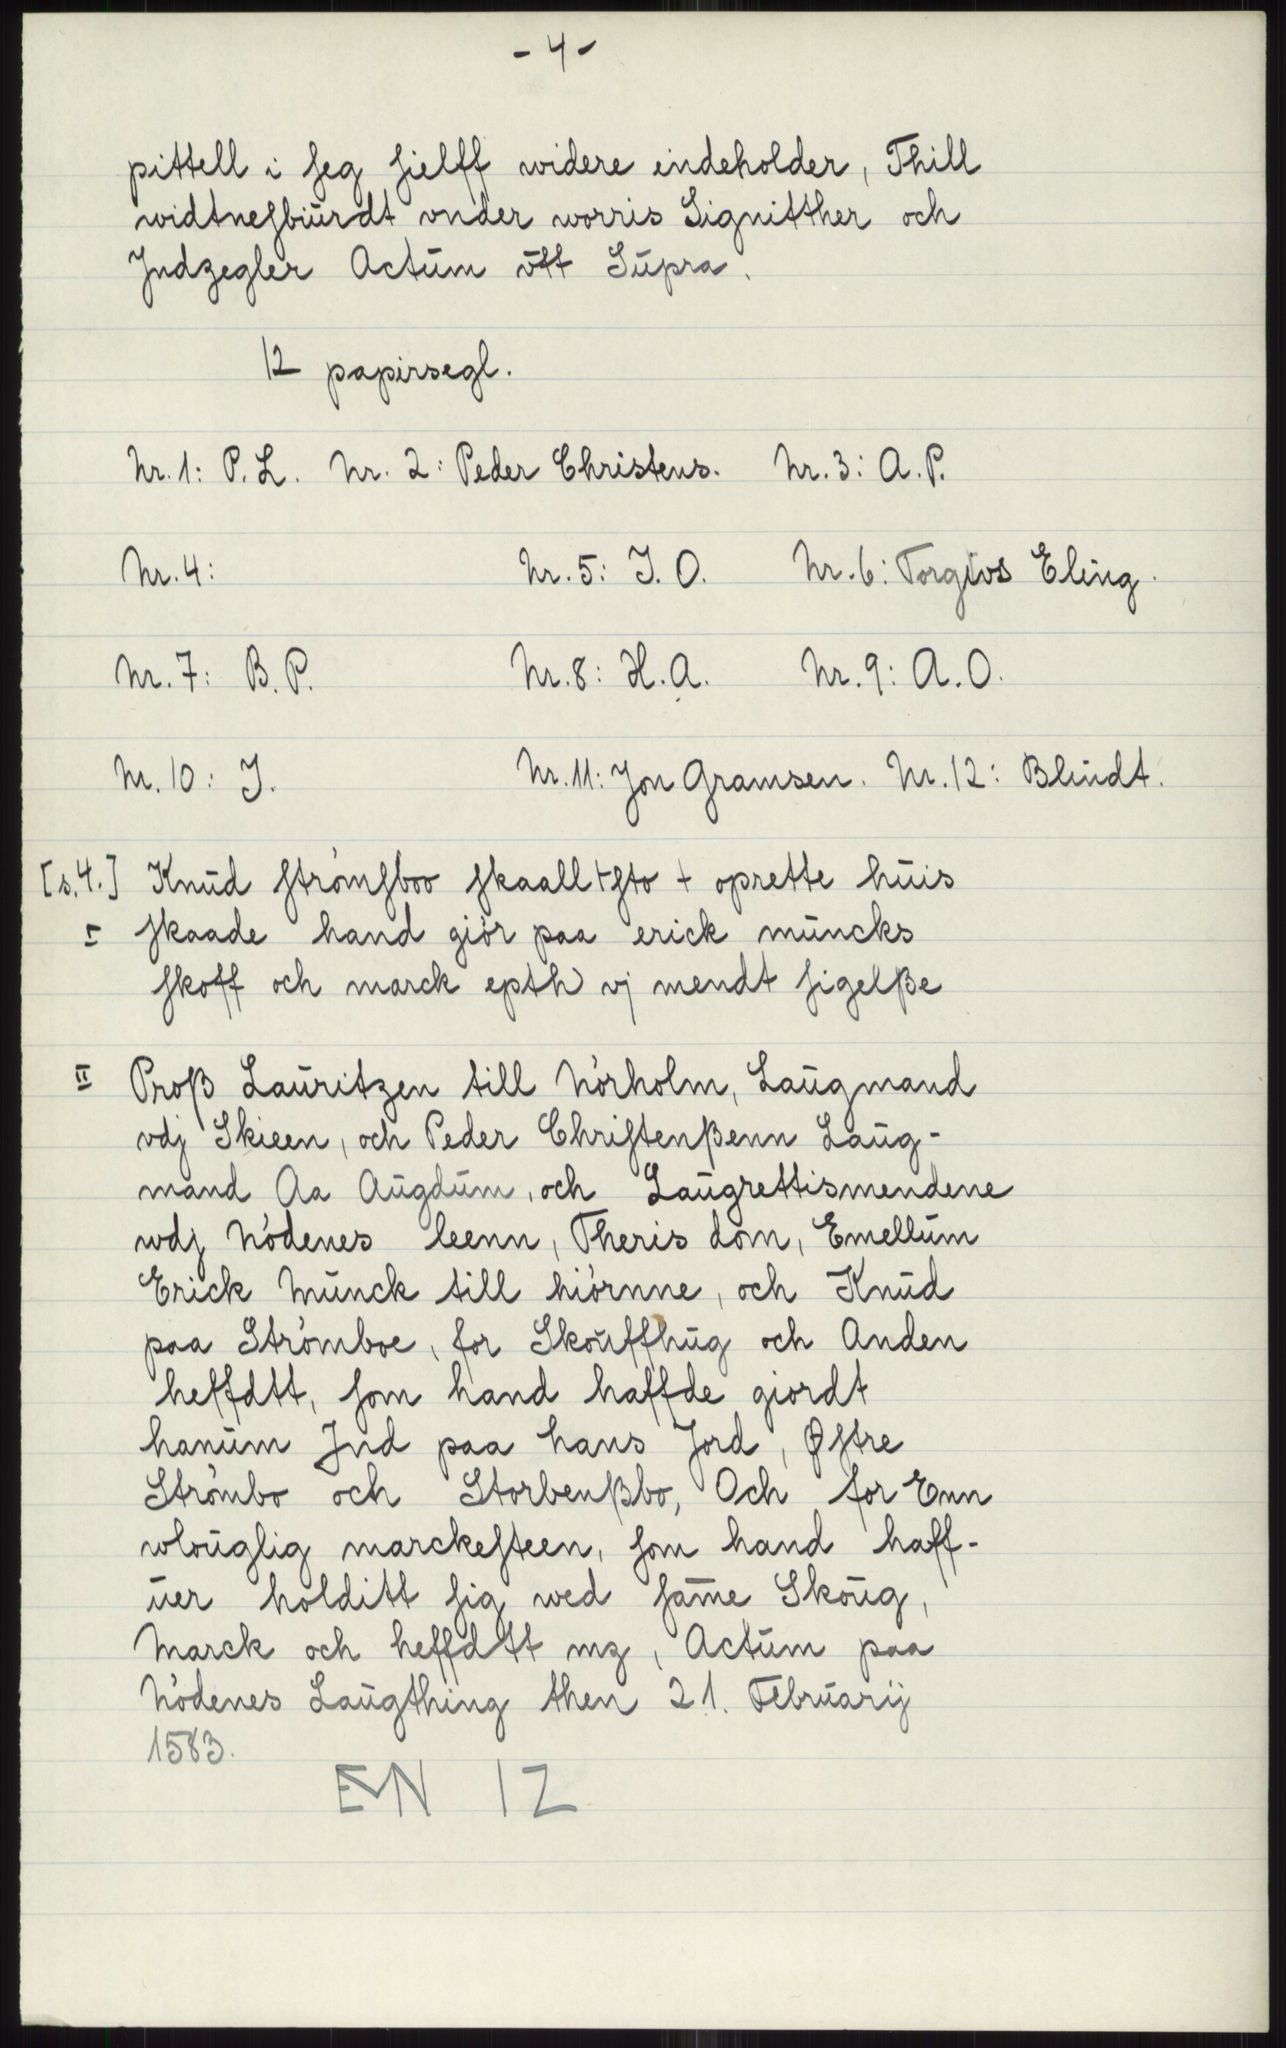 - 4 -
pittell i ſeg ſielff widere eindeholder, Thill
widtneſbiūrdt vnder worris Signitther och
Jndzegler Actūm vtt Sūpra.
12 papirsegl.
Nr. 1: P. L. Nr. 2: Peder Christens. Nr. 3: A. P.
Nr. 4: Nr. 5: J. O. Nr. 6: Torgivs Eling.
Nr. 7: B. P. Nr. 8: H. A. Nr. 9: A. O.
Nr. 10: J. Nr. 11: Jon Gramsen. Nr. 12: Blindt.
[s. 4.] Knūd ſtrömſboo ſkaall + ſto + oprette hūis
I ſkaade hand giör paa erick mūncks
ſkoff och marck epth vj mendt ſigelße
II Proß Laūritzen till Nörholm, Laūgmand
vdj Skieen, och Peder Chriſtenßenn Laūg-
mand Aa Aūgdūm, och Laūgrettismendene
wdj Nödenes leenn, Theris dom, Emellūm
Erick Mūnck till hiörnne, och Knūd
paa Strömboe, for Skoūffhūg och Anden
heffdtt, ſom hand haffde giordt
hanūm Jnd paa hans Jord, Øſtre
Strömbo och Storbenßbo, Och for Enn
wloūglig marckeſteen, ſom hand haff-
ūer holditt ſig wed ſam̄e Skoūg,
Marck och heffdtt mz, Actūm paa
Nödenes Laūgthing then 21. Febrūarij
1583.
EMN 12